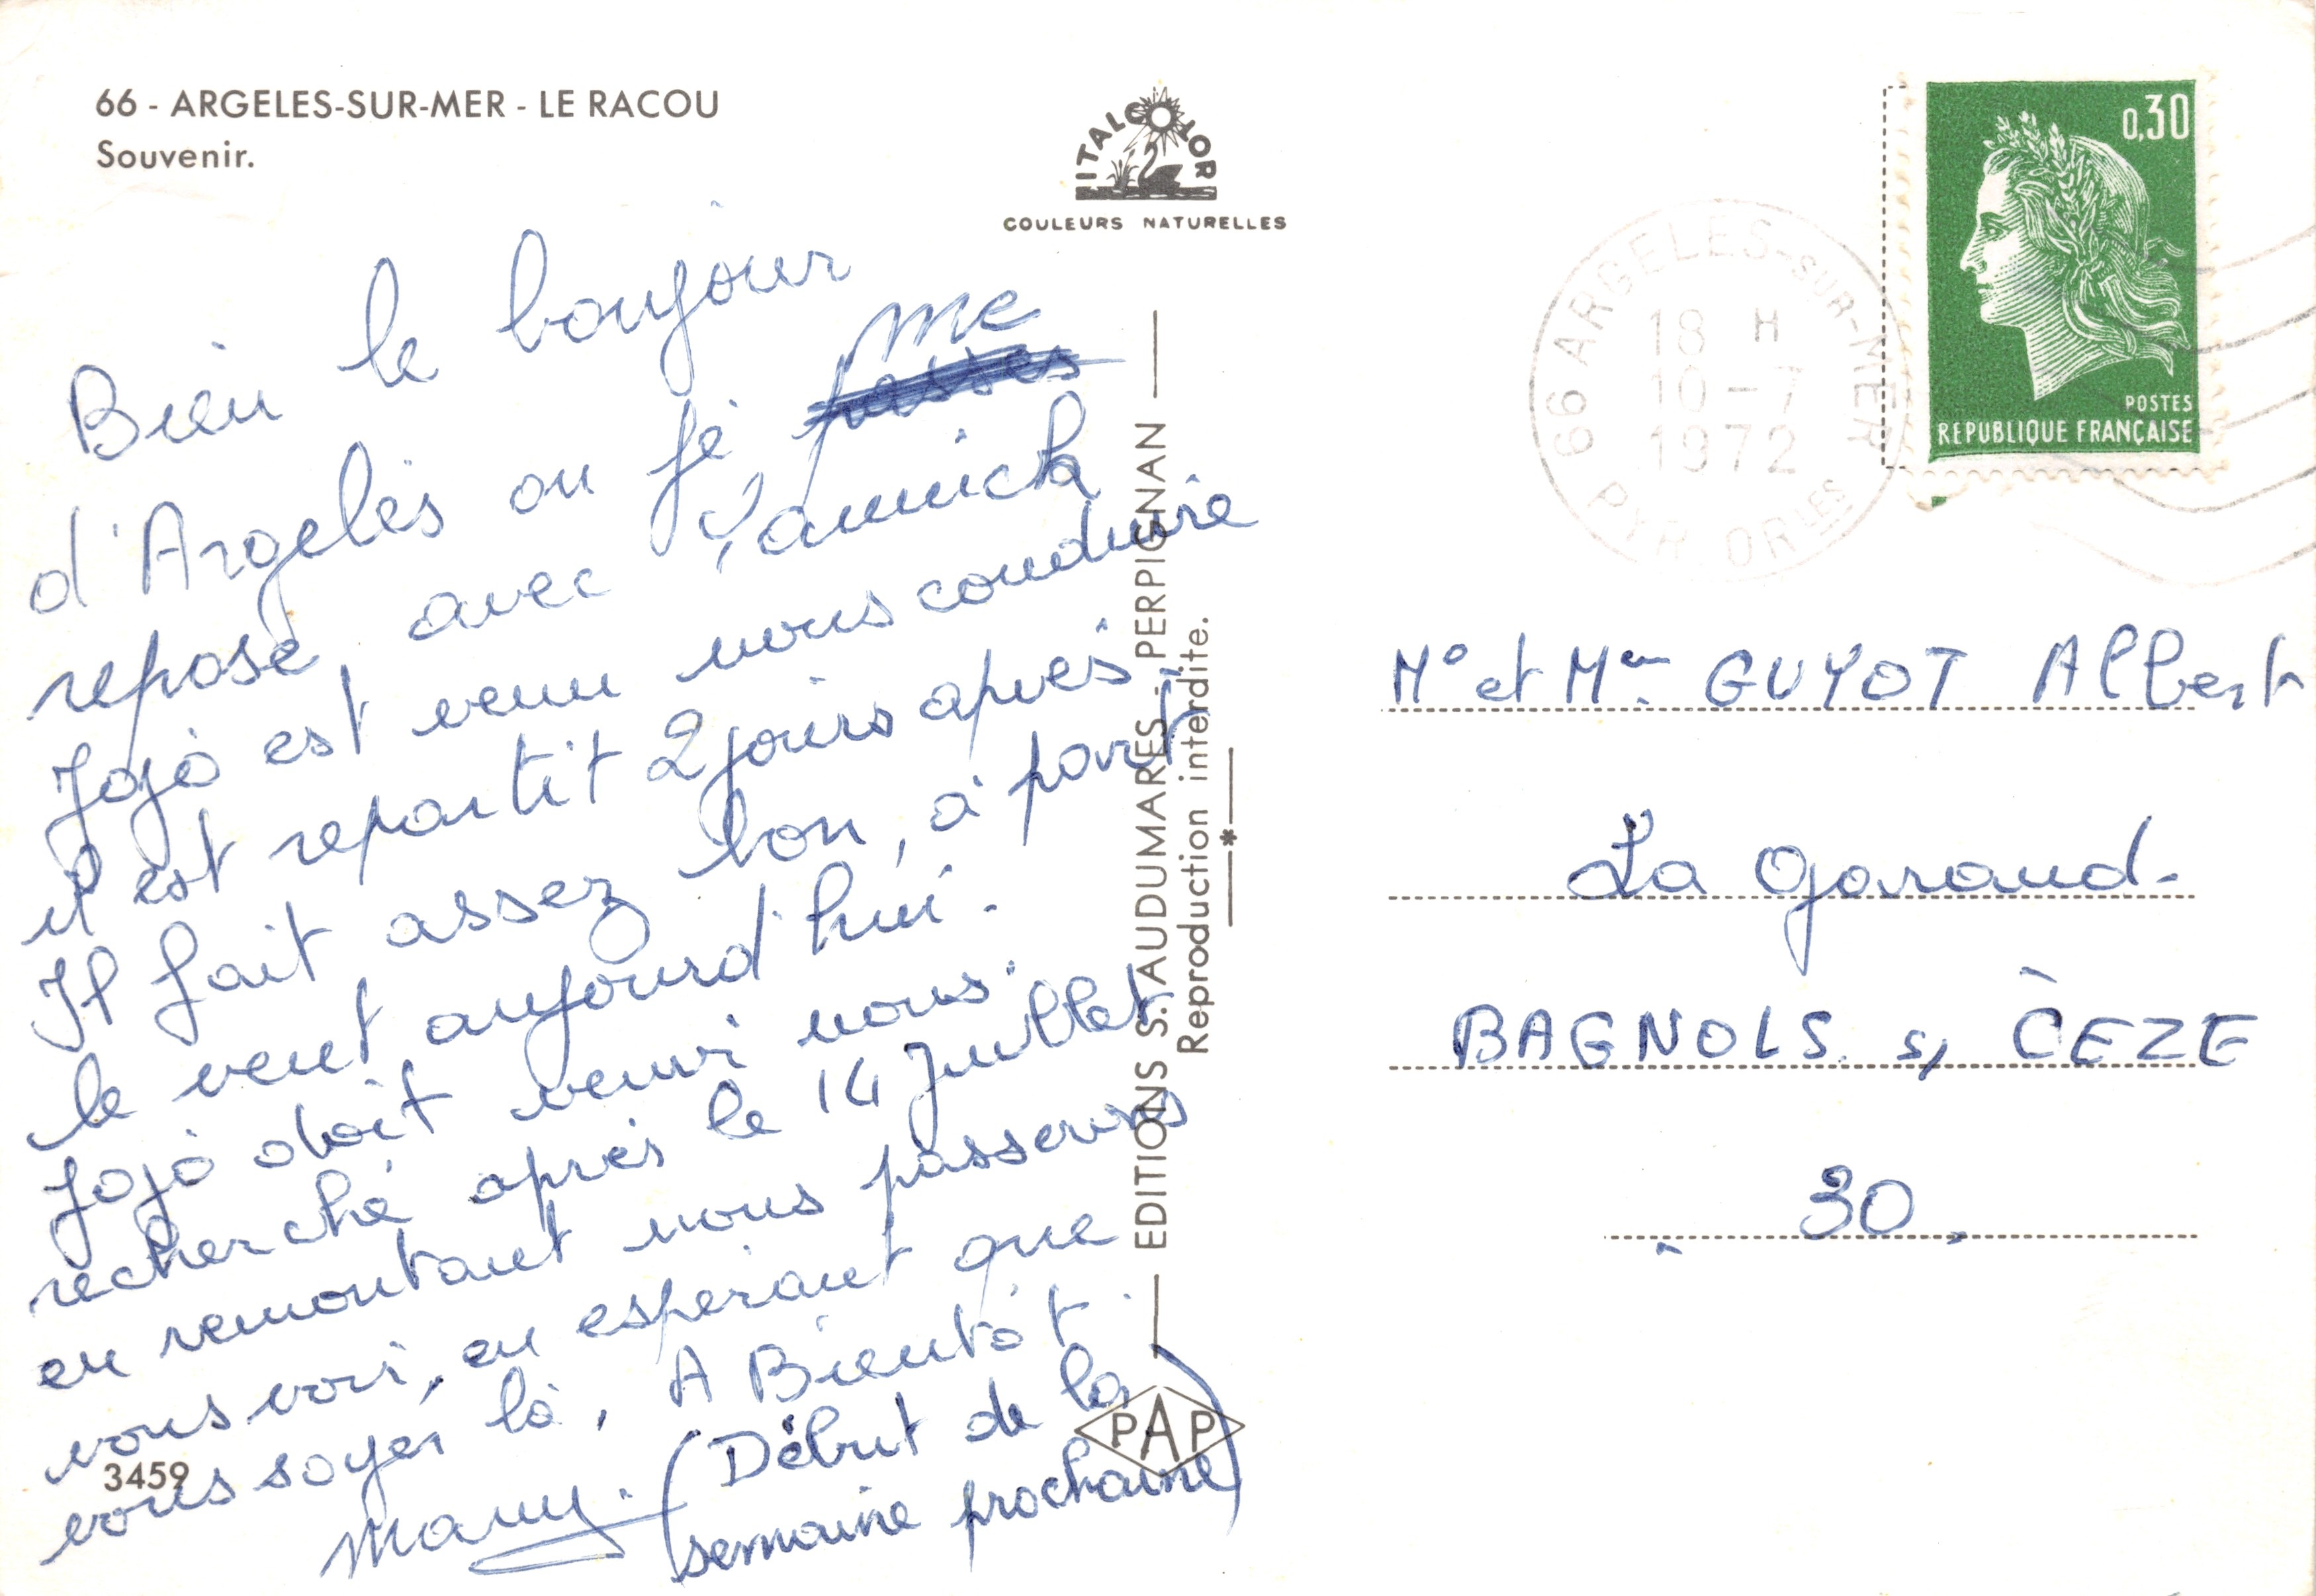 66 - ARGELES-SUR-MER - LE RACOU
Souvenir.
ITALCOLOR
COULEURS NATURELLES
Bien le bonjour
d'Argelès ou je me
repose, avec Yannick
Jojo est venu nous conduire
il est repartit 2 jours après,
Il fait assez bon, à part
le vent aujourd'hui.
Jojo doit venir nous
recherché après le 14 Juillet
en remontant nous passerons
vous voir, en espérant que
vous soyer là, A Bientôt.
Mamy. (Début de la
semaine prochaine)
3459
EDITIONS S. AUDUMARES - PERPIGNAN
Reproduction interdite.
PAP
66 ARGELES-SUR-MER
18 H
10-7
1972
PYR ORLES
0,30
POSTES
REPUBLIQUE FRANÇAISE
Mr et Mme GUYOT Albert
La Garaud.
BAGNOLS s/ CEZE
30